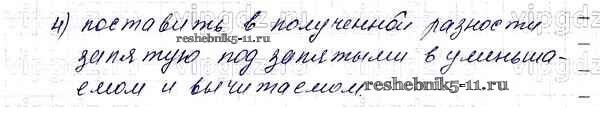 4) поставить в полученной разности
запятую под запятыми в уменьша-
reshebnik5-11.ru
емом и вычитаемом.
reshebnik5-11.ru